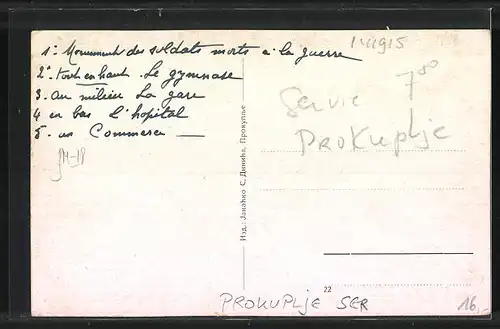 1° Monument des soldats morts à la guerre
2° tout en haut. Le gymnase
3. au milieu La gare
4 en bas L'hopital
5. un Commerce
Servie
700
Prokuplje
Изд.: Јанаћко С. Динића, Прокупље
22
PROKUPLJE SER
16,-